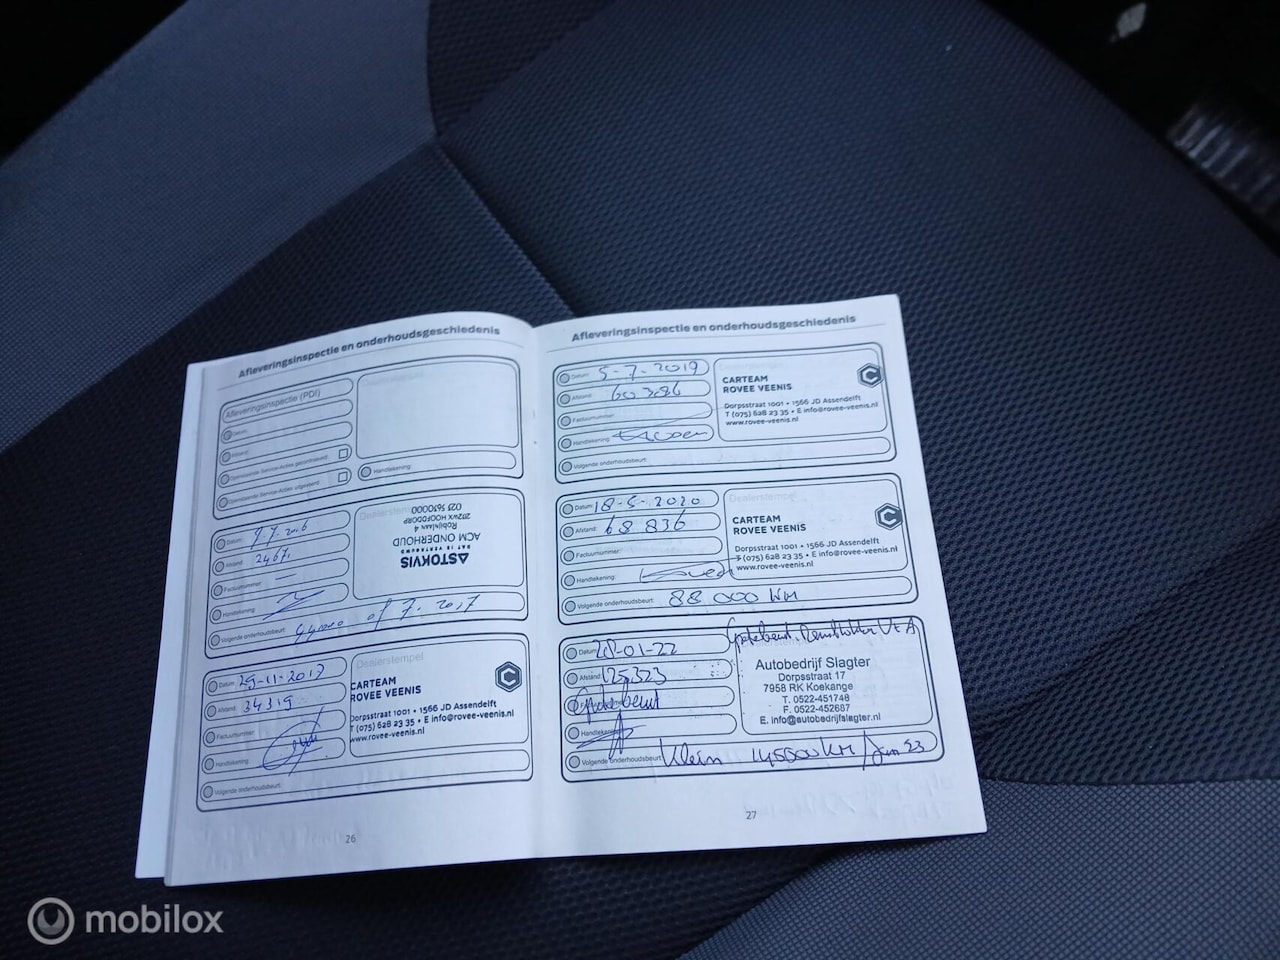 Afleveringsinspectie en onderhoudsgeschiedenis
Afleveringsinspectie (PDI)
Datum:
Afstand:
Openstaande Service-Acties gecontroleerd:
Openstaande Service-Acties uitgevoerd:
Handtekening:
Datum:
Afstand:
Factuurnummer:
Handtekening:
Volgende onderhoudsbeurt: of 7.2017
Dealerstempel
ASTOKVIS
DAT IS VERTROUWD
ACM ONDERHOUD
Robijnlaan 4
2132WX HOOFDDORP
023 5630000
Datum: 29-11-2017
Afstand: 34319
Factuurnummer:
Handtekening:
Volgende onderhoudsbeurt:
Dealerstempel
CARTEAM
ROVEE VEENIS
Dorpsstraat 1001 • 1566 JD Assendelft
T (075) 628 23 35 • E info@rovee-veenis.nl
www.rovee-veenis.nl
26
Afleveringsinspectie en onderhoudsgeschiedenis
Datum: 5-7-2019
Afstand: 60386
Factuurnummer:
Handtekening:
Volgende onderhoudsbeurt:
CARTEAM
ROVEE VEENIS
Dorpsstraat 1001 • 1566 JD Assendelft
T (075) 628 23 35 • E info@rovee-veenis.nl
www.rovee-veenis.nl
Datum: 18-5-2020
Afstand: 68 836
Factuurnummer:
Handtekening:
Volgende onderhoudsbeurt: 88.000 KM
Dealerstempel
CARTEAM
ROVEE VEENIS
Dorpsstraat 1001 • 1566 JD Assendelft
T (075) 628 23 35 • E info@rovee-veenis.nl
www.rovee-veenis.nl
Grotebeurt. Remblokken V+A
Datum: 28-01-22
Afstand: 125323
Grotebeurt
Handtekening:
Volgende onderhoudsbeurt: Klein 145000 KM / Jan 23
Autobedrijf Slagter
Dorpsstraat 17
7958 RK Koekange
T. 0522-451748
F. 0522-452687
E. info@autobedrijfslagter.nl
27
mobilox